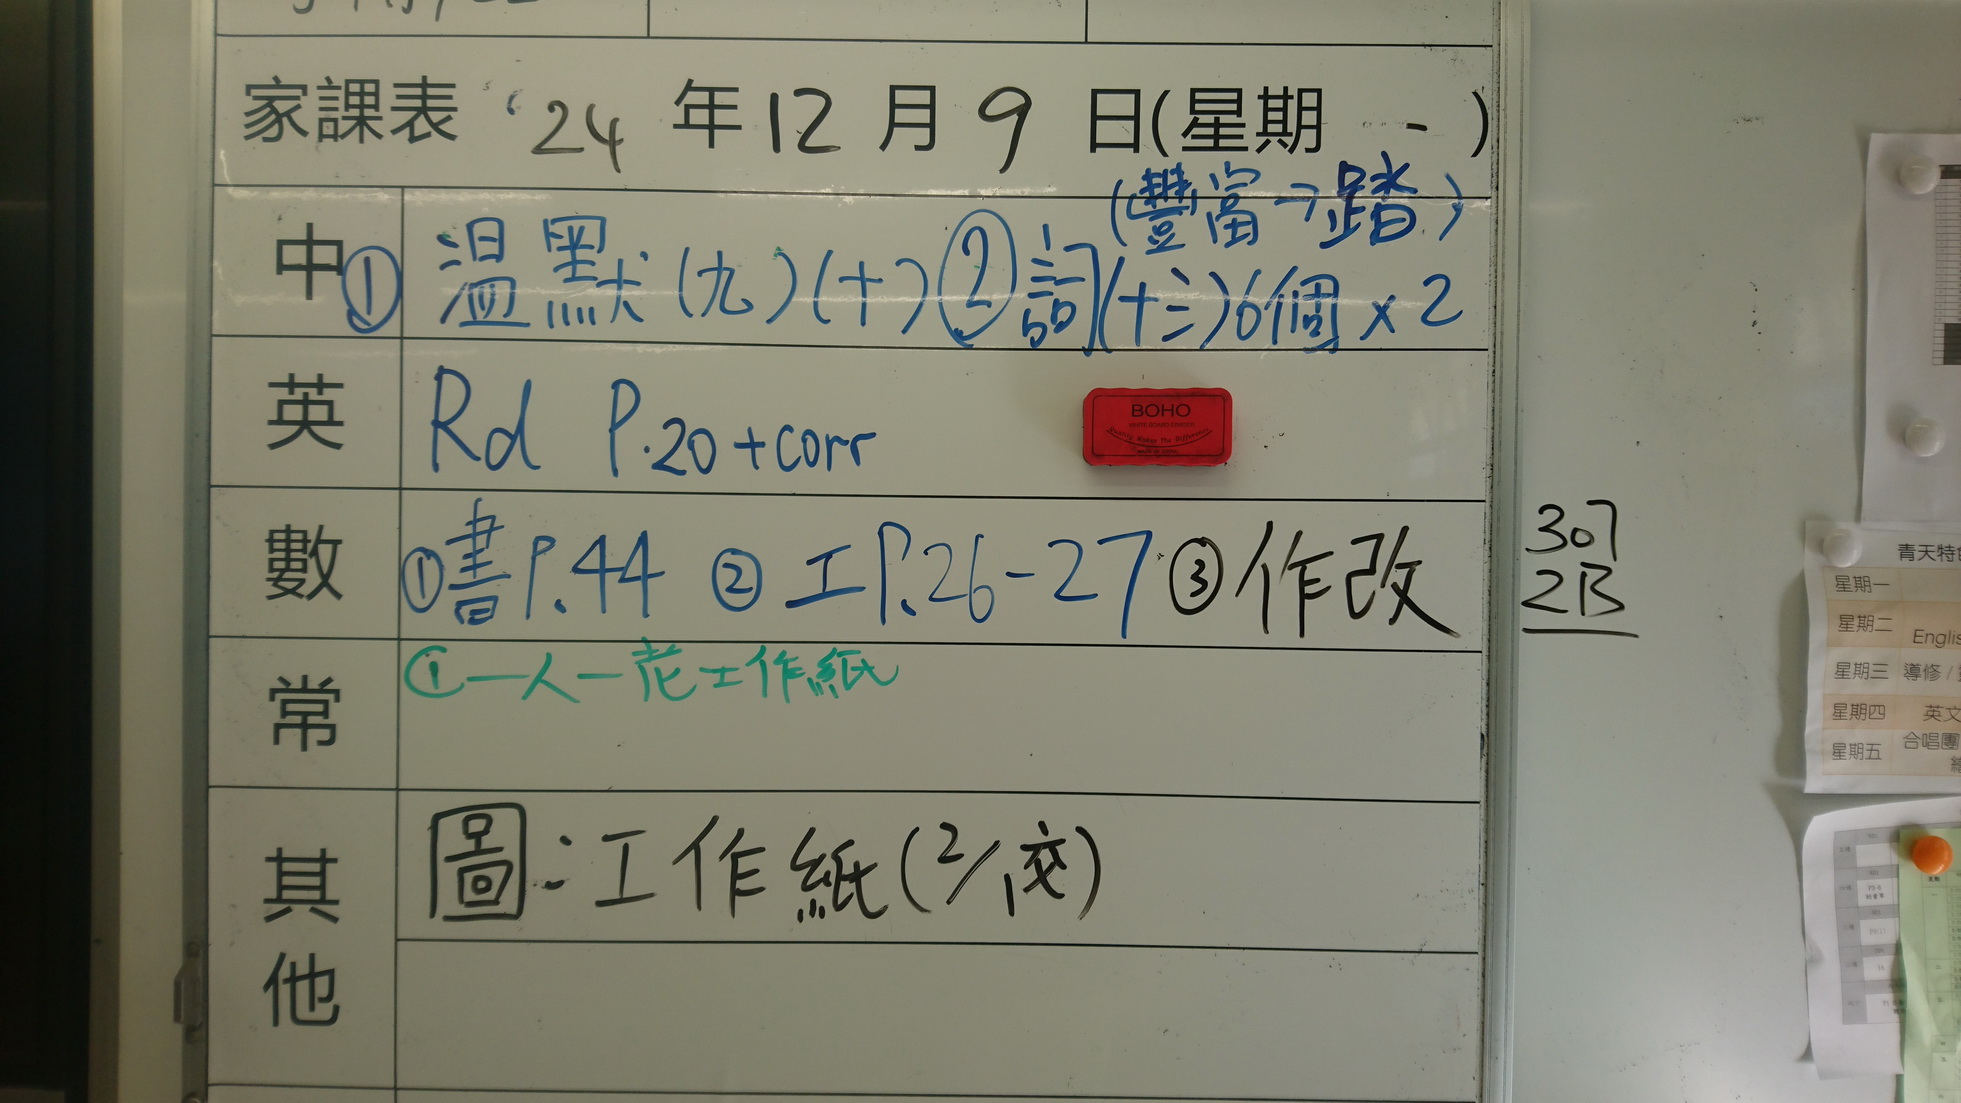 家課表 '24 年 12 月 9 日(星期 一 )
(豐富→踏)
中 ① 溫默(九)(十) ② 詞(十三)6個 x 2
英 Rd P.20 + corr
BOHO
WHITE BOARD ERASER
Quality Makes The Difference
數 ①書 P.44 ② 工 P.26-27 ③ 作改
307
2B
常 ①一人一花工作紙
其他 圖:工作紙(2/交)
青天特
星期一
星期二 Englis
星期三 導修 /
星期四 英文
星期五 合唱團